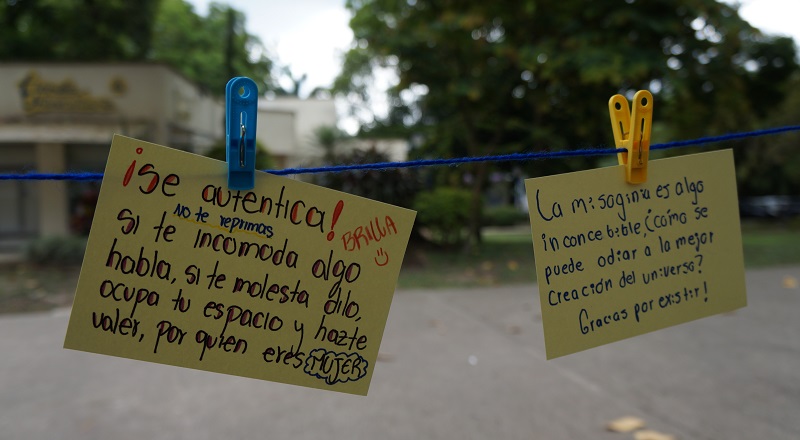 ¡Se autentica!
No te reprimas
BRILLA
si te incomoda algo
habla, si te molesta dilo,
ocupa tu espacio y hazte
valer, por quien eres MUJER
La misoginia es algo
inconcebible, ¿cómo se
puede odiar a lo mejor
creación del universo?
Gracias por existir!